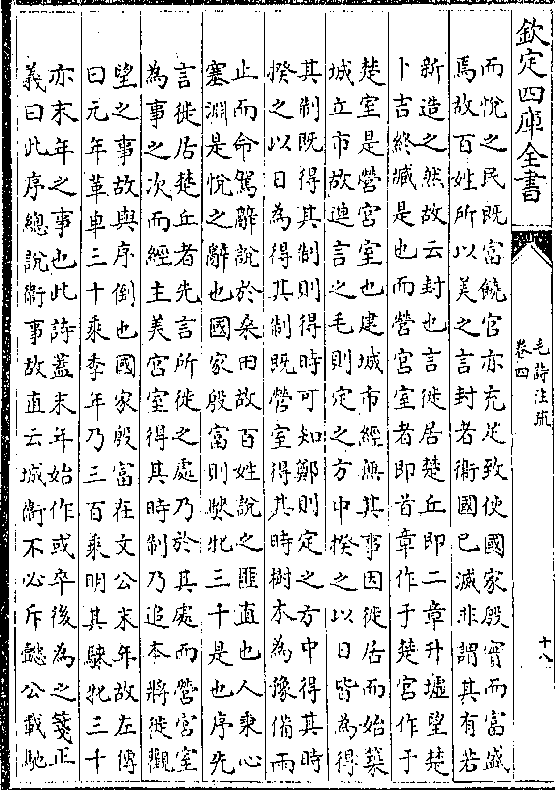 欽定四庫全書
毛詩注疏
卷四
十八
而悅之民既富饒官亦充足致使國家殷實而富盛
焉故百姓所以美之言封者衛國已滅非謂其有若
新造之然故云封也言徙居楚丘即二章升墟望楚
卜吉終臧是也而營宮室者即首章作于楚宮作于
楚室是營宮室也建城市經無其事因徙居而始築
城立市故連言之毛則定之方中揆之以日皆為得
其制既得其制則得時可知鄭則定之方中得其時
揆之以日為得其制既營室得其時樹木為豫備雨
止而命駕辭說於桑田故百姓說之匪直也人秉心
塞淵是悅之辭也國家殷富則騋牝三千是也序先
言徙居楚丘者先言所徙之處乃於其處而營宮室
為事之次而經主美宮室得其時制乃追本將徙觀
望之事故與序倒也國家殷富在文公末年故左傳
曰元年革車三十乘季年乃三百乘明其騋牝三十
亦末年之事也此詩蓋末年始作或卒後為之箋正
義曰此序總說衛事故直云城衛不必斥懿公載馳